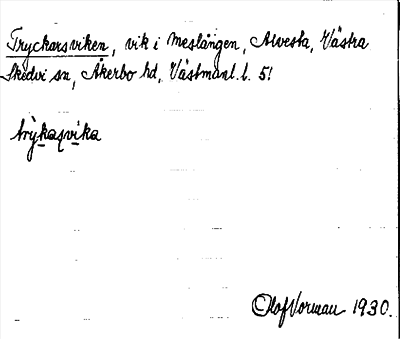 Tryckarsviken, vik i Meslången, Alvesta, Västra
Skedvi sn, Åkerbo hd, Västmanl. l. 5!
trỳkaṣvika
Olof Vorman 1930.